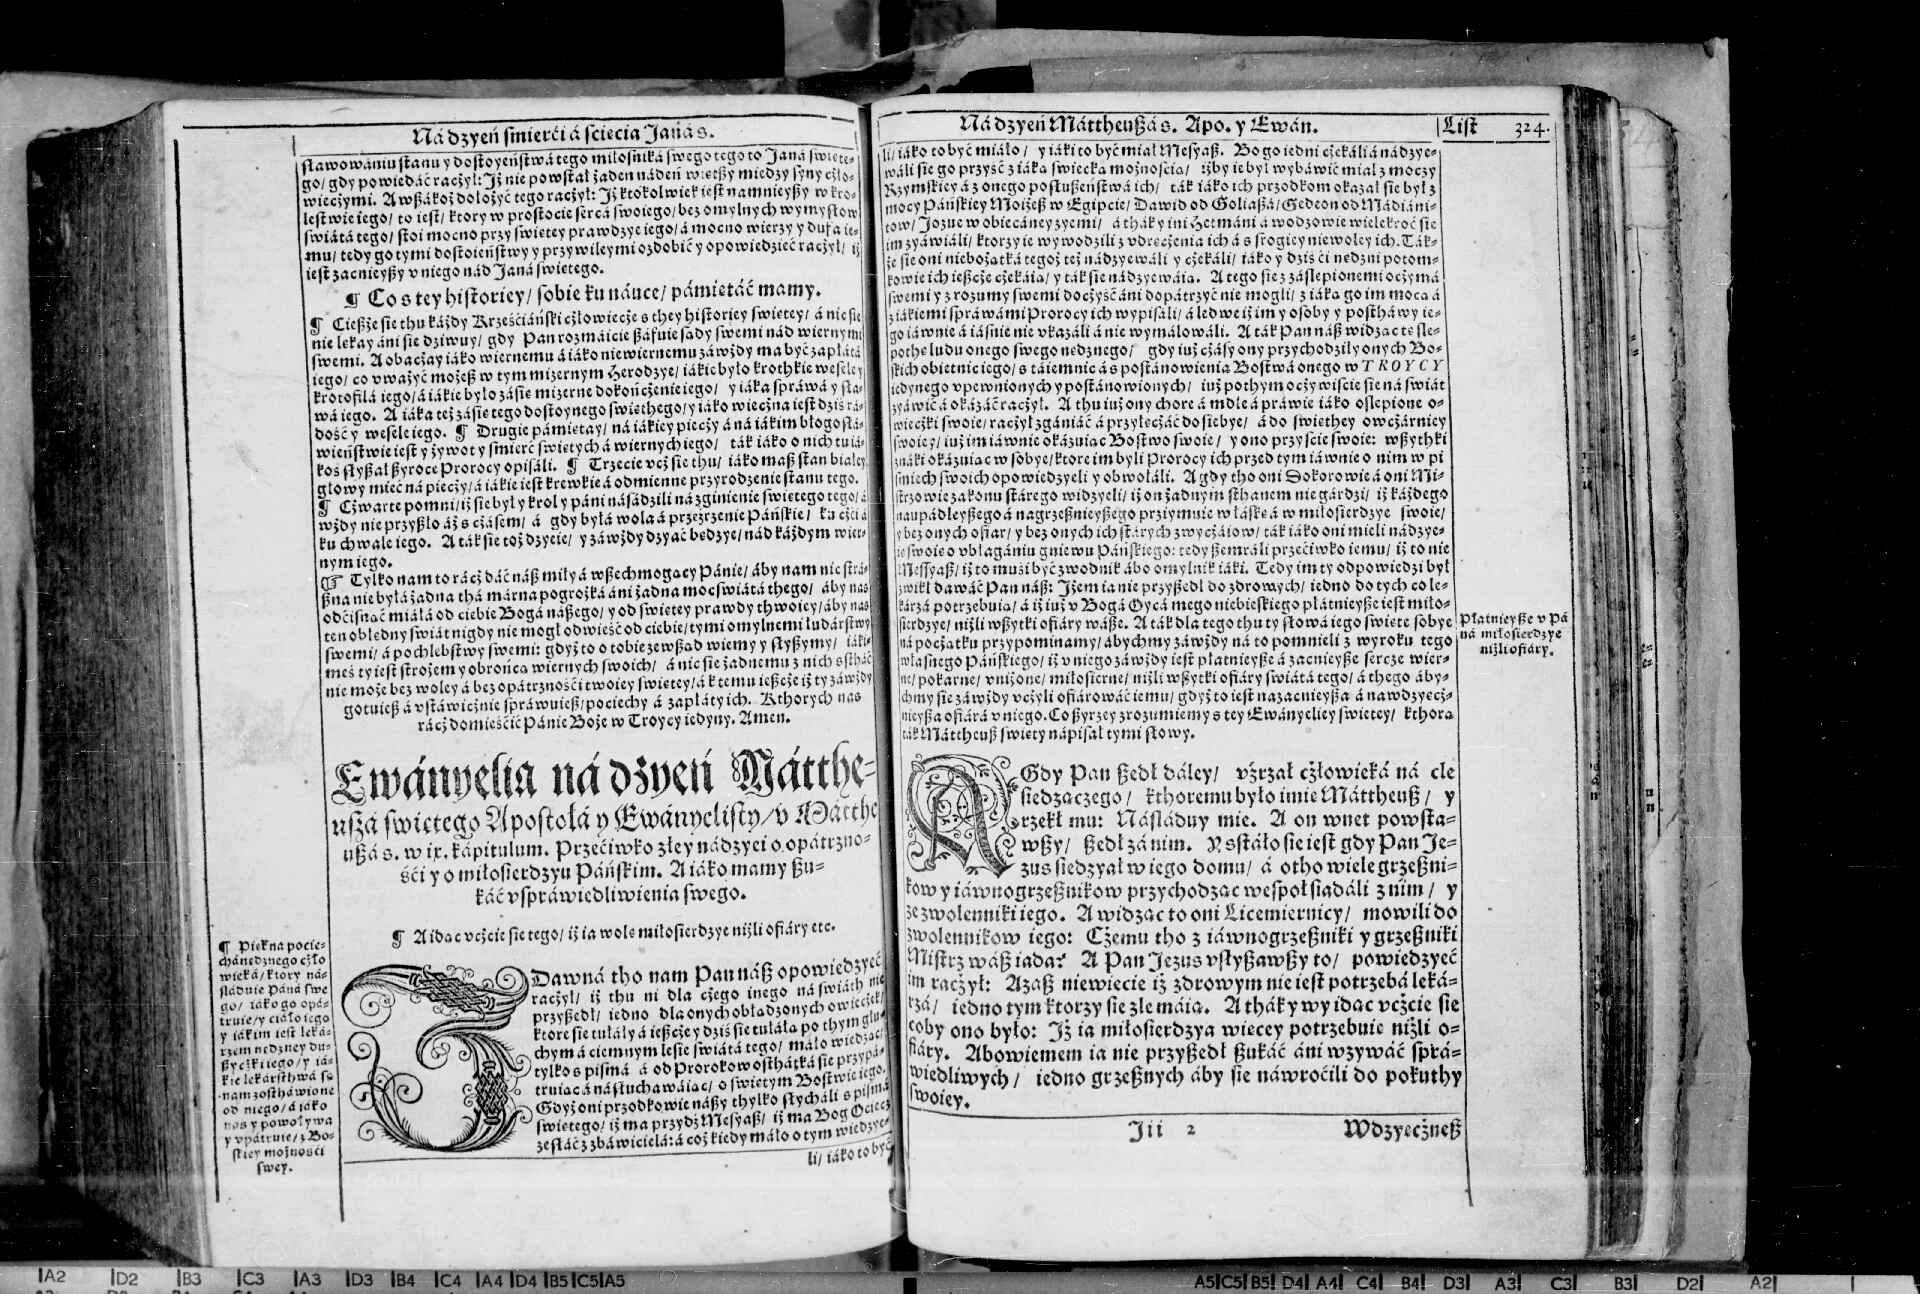 Ná dzyeń śmierći á ścięcia Janá s.
stáwowániu stanu y dostoyeństwá tego miłosniká swego tego to Janá święte-
go/ gdy powiedáć raczył: Jż nie powstał żaden nádeń więtszy miedzy syny człо-
wieczymi. A wszákoż dołożyć tego raczył: Jż ktokolwiek iest namnieyszy w kro-
lestwie iego/ to iest/ ktory w prostocie sercá swoiego/ bez omylnych wymysłow
świátá tego/ stoi mocno przy świętey prawdzye iego/ á mocno wierzy y dufa ie-
mu/ tedy go tymi dostoieństwy y przywileymi ozdobić y opowiedzieć raczył/ iż
iest zacnieyszy v niego nád Janá świętego.
¶ Co s tey historiey/ sobie ku náuce/ pámiętáć mamy.
¶ Cieszże sie thu káżdy Krześćiáński człowiecze s they historiey świętey/ á nic sie
nie lękay áni sie dziwuy/ gdy Pan rozmáicie száfuie sądy swemi nád wiernymi
swemi. A obaczay iáko wiernemu á iáko niewiernemu záwżdy ma być zapłátá
iego/ co vważyć możesz w tym mizernym Herodzye/ iákie było krothkie wesele y
krotofilá iego/ á iákie było zásie mizerne dokończenie iego/ y iáka spráwá y sta-
wá iego. A iáka też zásie tego dostoynego świethego/ y iáko wieczna iest dziś rá-
dość y wesele iego. ¶ Drugie pámiętay/ ná iákiey pieczy á ná iákim błogosłá-
wieństwie iest y żywot y śmierć świętych á wiernych iego/ ták iáko o nich tu iá-
koś słyszał szyroce Prorocy opisáli. ¶ Trzecie vcż sie thu/ iáko masz stan białey
głowy mieć ná pieczy/ á iákie iest krewkie á odmienne przyrodzenie stanu tego.
¶ Czwarte pomni/ iż sie był y krol y páni násádzili ná zginienie świętego tego/ á
wżdy nie przyszło áż s czásem/ á gdy byłá wola á przeźrzenie Páńskie/ ku czći á
ku chwale iego. A ták sie toż dzyeie/ y záwżdy dzyać będzye/ nád káżdym wier-
nym iego.
☞ Tylko nam to rácż dáć nász miły á wszechmogący Pánie/ áby nam nie strá-
szna nie byłá żadna thá márna pogrożká áni żadna moc świátá thego/ áby nas
odćisnąć miáłá od ciebie Bogá nászego/ y od świętey prawdy thwoiey/ áby nas
ten obłędny świát nigdy nie mogł odwieść od ciebie/ tymi omylnemi łudárstwy
swemi/ á pochlebstwy swemi: gdyż to o tobie zewsząd wiemy y słyszymy/ iáki-
meś ty iest strożem y obrońcą wiernych swoich/ á nic sie żadnemu z nich s stháć
nie może bez woley á bez opátrzności twoiey świętey/ á k temu ieszcze iż ty záwżdy
gotuiesz á vstáwicznie spráwuiesz/ pociechy á zapłáty ich. Kthorych nas
rácż domieśćić Pánie Boże w Troycy iedyny. Amen.
Ewányelia ná dżyeń Mátthe-
uszá świętego Apostołá y Ewányelisty/ v Mátthe
uszá s. w ix. kápitulum. Przećiwko złey nádzyei o opátrzno-
śći y o miłosierdzyu Páńskim. A iáko mamy szu-
káć vspráwiedliwienia swego.
¶ A idąc vczcie sie tego/ iż ia wolę miłosierdzye niżli ofiáry etc.
¶ Piękna pocie-
chá nędznego człо
wieká/ ktory ná-
śláduie Páná swe
go/ iáko go opá-
truie/ y ciáło iego
y iákim iest leká-
rzem nędzney du-
szyczki iego/ y iá-
kie lekárstwá są
nam zostháwione
od niego/ á iáko
nas y powoływa
y vpátruie/ z Bo-
skiey możności
swey.
Dawná tho nam Pan nász opowiedzyeć
raczył/ iż thu ni dla czego inego ná świáth nie
przyszedł/ iedno dla onych obłądzonych owieczek/
ktore sie tułáły á ieszcze y dziś sie tułáią po thym głu-
chym á ciemnym lesie świátá tego/ máło wiedząc/
tylko s pismá á od Prorokow osthátká sie przypá-
truiąc á násłuchawáiąc/ o świętym Bostwie iego.
Gdyż oni przodkowie nászy thylko słycháli s pismá
świętego/ iż ma przydź Mesyasz/ iż ma Bog Ociec
zesłáć z zbáwicielá: á coż kiedy máło o tym wiedzye-
li/ iáko to być
Ná dzyeń Máttheuszá s. Apo. y Ewán.
List 324.
li/ iáko to być miáło/ y iáki to być miał Mesyasz. Bo go iedni czekáli á nádzye-
wáli sie go przyść z iáką świecką możnością/ iżby ie był wybáwić miał z mocy
Rzymskiey á z onego posłuszeństwá ich/ ták iáko ich przodkom okazał sie był z
mocy Páńskiey Moizesz w Egipcie/ Dawid od Goliaszá/ Gedeon od Mádiáni-
tow/ Jozue w obiecáney zyemi/ á thák y ini Hetmáni á wodzowie wielekroć sie
im zyáwiáli/ ktorzy ie wywodzili z vdręczenia ich á s srogiey niewoley ich. Ták-
że sie oni niebożątká tegoż też nádzyewáli y czekáli/ iáko y dziś ći nędzni potom-
kowie ich ieszcze czekáią/ y ták sie nádzyewáią. A tego sie z záslepionemi oczymá
swemi y z rozumy swemi doczyść áni dopátrzyć nie mogli/ z iáką go im mocą á
z iákiemi spráwámi Prorocy ich wypisáli/ á ledwe iż im y osoby y postháwy ie-
go iáwnie á iáśnie nie vkazáli á nie wymálowáli. A ták Pan nász widząc tę śle-
pothę ludu onego swego nędznego/ gdy iuż czásy ony przychodziły onych Bo-
skich obietnic iego/ s táiemnic á s postánowienia Bostwá onego w TROYCY
iedynego vpewnionych y postánowionych/ iuż pothym oczywiście sie ná świát
zyáwić á okázáć raczył. A thu iuż ony chore á mdłe á práwie iáko oślepione o-
wieczki swoie/ raczył zgániáć á przyłęczáć do siebye/ á do świethey owczárniey
swoiey/ iuż im iáwnie okázuiąc Bostwo swoie/ y ono przyście swoie: wszythki
znáki okázuiąc w sobye/ ktore im byli Prorocy ich przed tym iáwnie o nim w pi
smiech swoich opowiedzyeli y obwołáli. A gdy tho oni Dokorowie á oni Mi-
strzowie zakonu stárego widzyeli/ iż on żadnym sthanem nie gárdzi/ iż káżdego
naupádleyszego á nagrzesznieyszego przyimuie w łáskę á w miłosierdzye swoie/
y bez onych ofiar/ y bez onych ich stárych zwyczáiow/ ták iáko oni mieli nádzye-
ię swoię o vbłagániu gniewu Páńskiego: tedy szemráli przećiwko iemu/ iż to nie
Messyasz/ iż to musi być zwodnik ábo omylnik iáki. Tedy im ty odpowiedzi był
zwikł dawáć Pan nász: Jżem ia nie przyszedł do zdrowych/ iedno do tych co le-
kárzá potrzebuią/ á iż iuż v Bogá Oycá mego niebieskiego płátnieysze iest miło-
sierdzye/ niżli wszytki ofiáry wásze. A ták dla tego thu ty słowá iego święte sobye
ná początku przypominamy/ ábychmy záwżdy ná to pomnieli z wyroku tego
własnego Páńskiego/ iż v niego záwżdy iest płátnieysze á zacnieysze serce wier-
ne/ pokorne/ vniżone/ miłosierne/ niżli wszytki ofiáry świátá tego/ á thego áby-
chmy sie záwżdy vczyli ofiárowáć iemu/ gdyż to iest nazacnieysza á nawdzyęcz-
nieysza ofiárá v niego. Co szyrzey zrozumiemy s tey Ewányeliey świętey/ kthorą
ták Máttheusz święty nápisał tymi słowy.
A Gdy Pan szedł dáley/ vźrzał człowieká ná cle
siedzączego/ kthoremu było imię Máttheusz/ y
rzekł mu: Násláduy mię. A on wnet powsta-
wszy/ szedł zá nim. Y sstáło sie iest gdy Pan Je-
zus siedzyał w iego domu/ á otho wiele grzeszni-
kow y iáwnogrzesznikow przychodząc wespoł siádáli z nim/ y
ze zwolenniki iego. A widząc to oni Licemiernicy/ mowili do
zwolennikow iego: Czemu tho z iáwnogrzeszniki y grzeszniki
Mistrz wász iada? A Pan Jezus vsłyszawszy to/ powiedzyeć
im raczył: Azasz niewiecie iż zdrowym nie iest potrzebá leká-
rzá/ iedno tym ktorzy sie źle máią. A thák y wy idąc vczcie sie
coby ono było: Jż ia miłosierdzya więcey potrzebuię niżli o-
fiáry. Abowiemem ia nie przyszedł szukáć áni wzywáć sprá-
wiedliwych/ iedno grzesznych áby sie náwrocili do pokuthy
swoiey.
Płátnieysze v Pá
ná miłosierdzye
niżli ofiáry.
Jii 2
Wdzyęcżnesz
A2 D2 B3 C3 A3 D3 B4 C4 A4 D4 B5 C5 A5
A5 C5 B5 D4 A4 C4 B4 D3 A3 C3 B3 D2 A2